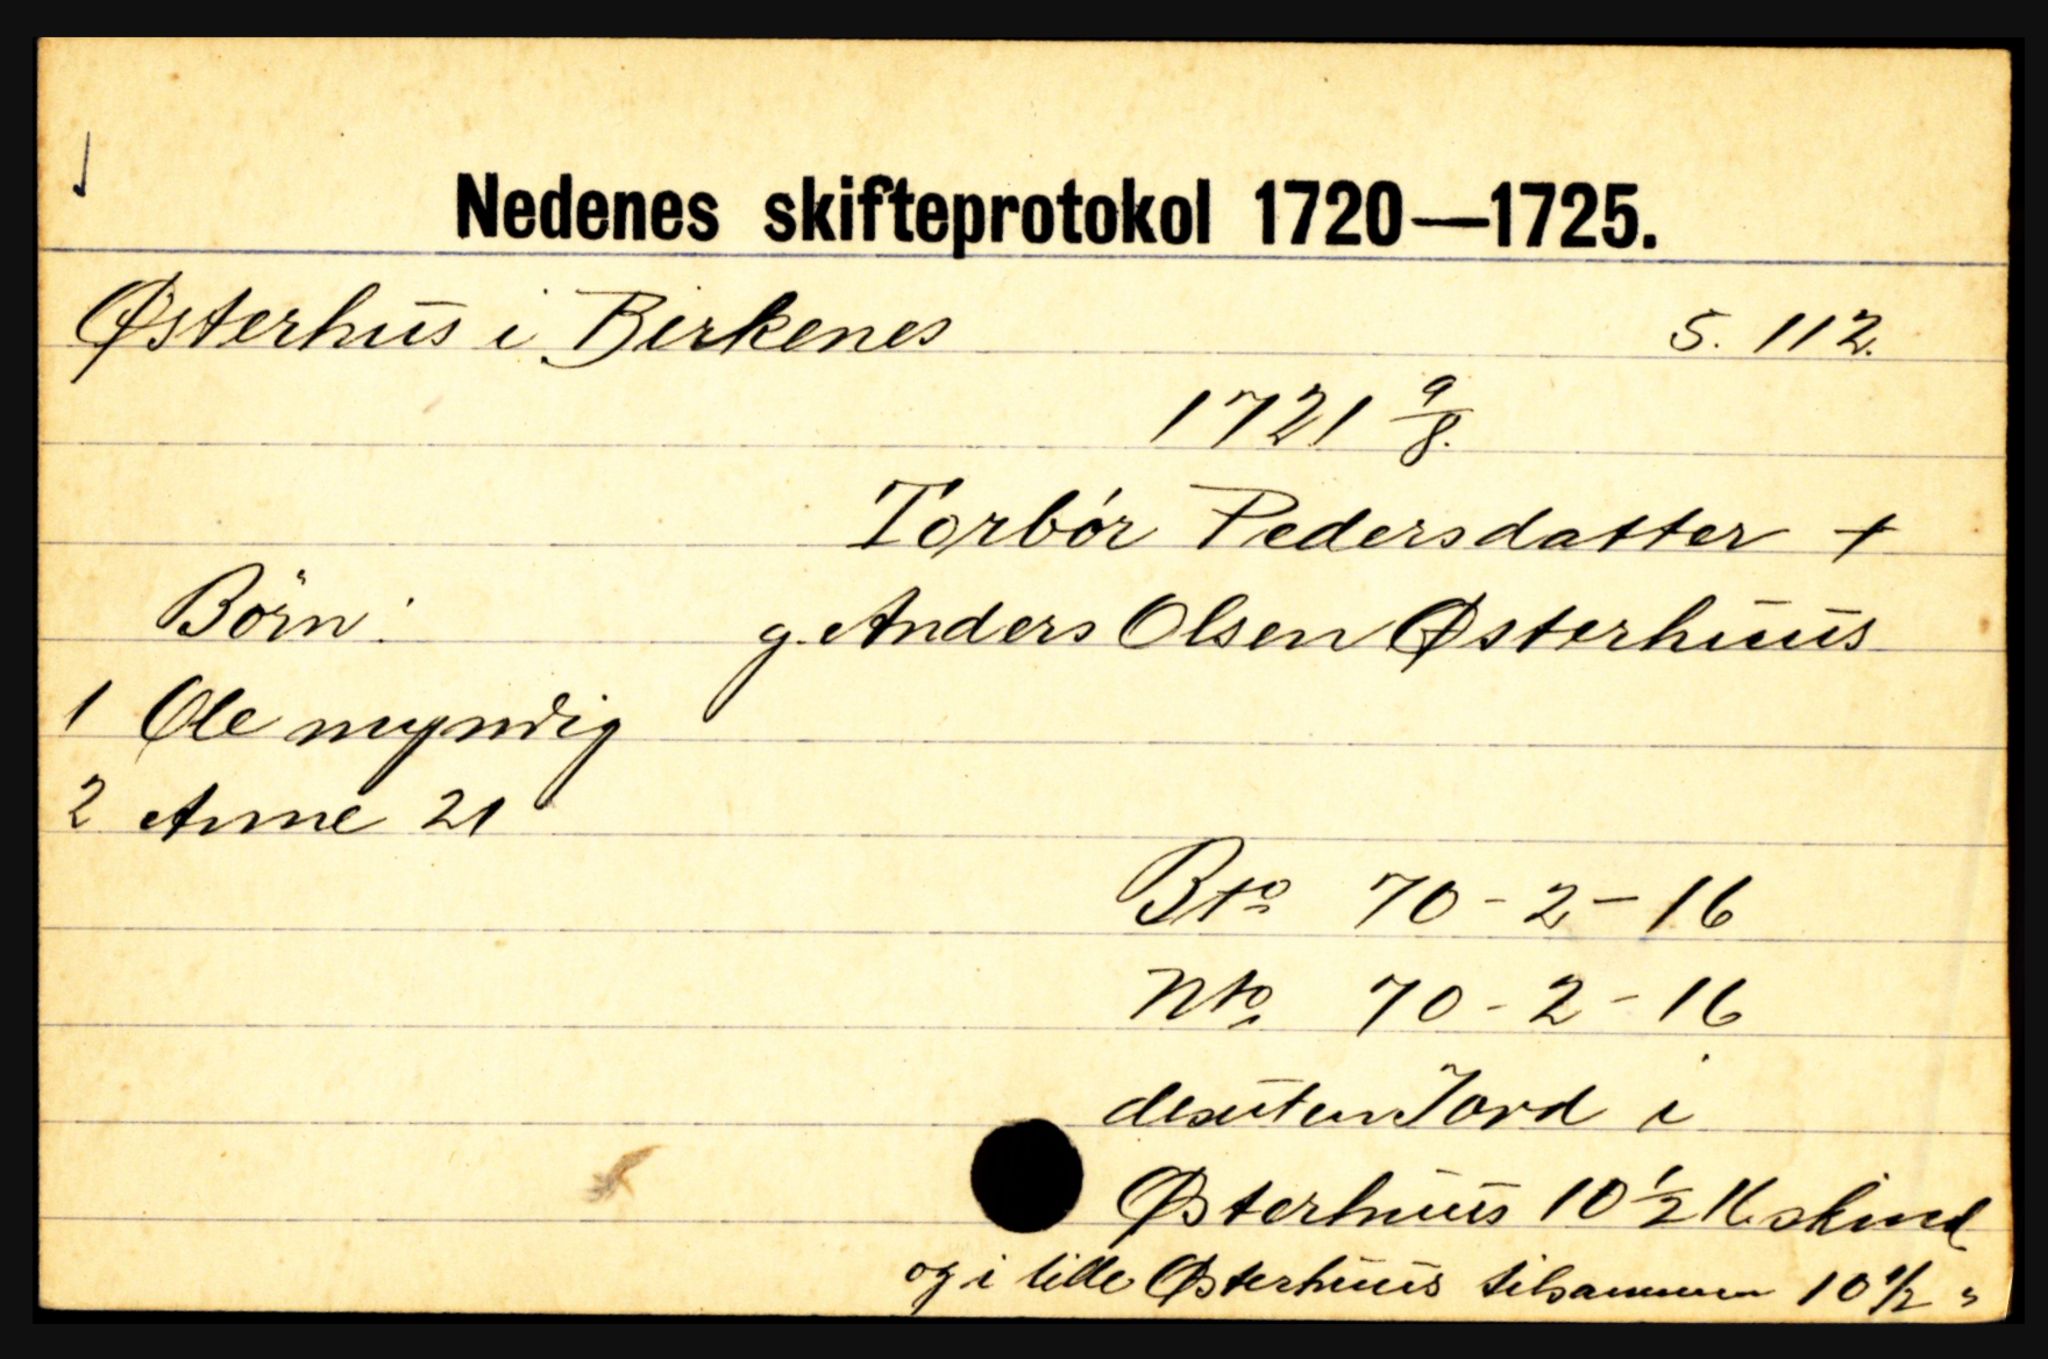 Nedenes skifteprotokol 1720—1725.
Østerhus i Birkenes S. 112.
1721 9/8.
Torbör Pedersdatter +
Börn: g. Anders Olsen Østerhuus
1 Ole myndig
2 Anne 21
Bto 70 - 2 - 16
Nto 70 - 2 - 16
desuten Jord i
Østerhuus 10 1/2 K skind
og i lille Østerhuus tilsammen 10 1/2 "